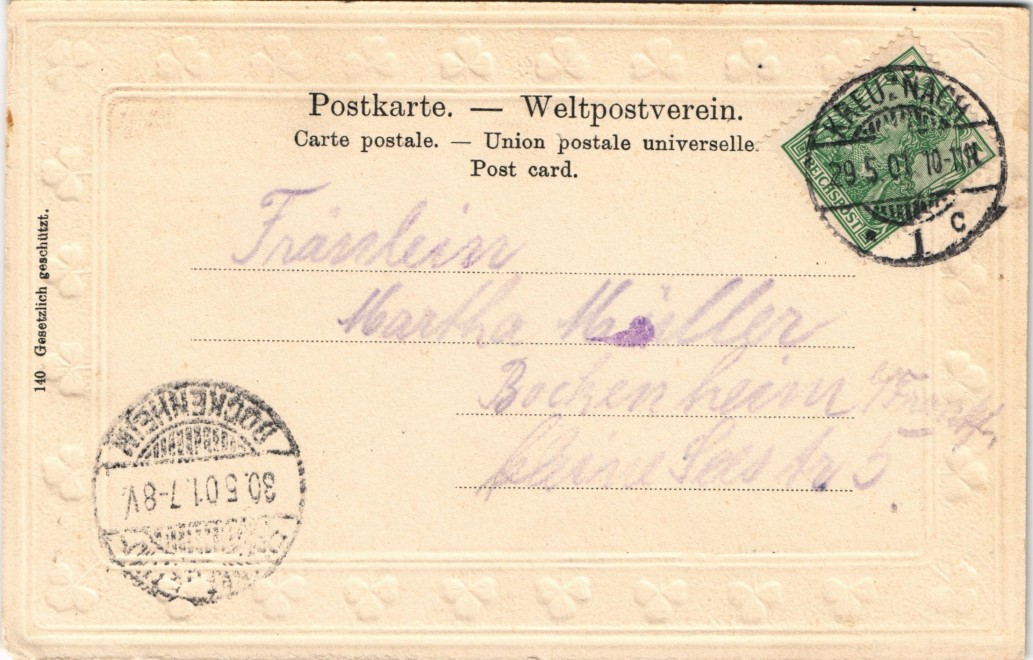 Postkarte. — Weltpostverein.
Carte postale. — Union postale universelle.
Post card.
KREUZNACH
29 5 01 10-11N
1 c
REICHSPOST
Fräulein
Martha Müller
Bockenheim b/Frankf.
kleine Seestr 5.
140 Gesetzlich geschützt.
BOCKENHEIM
30.5.01.7-8V.